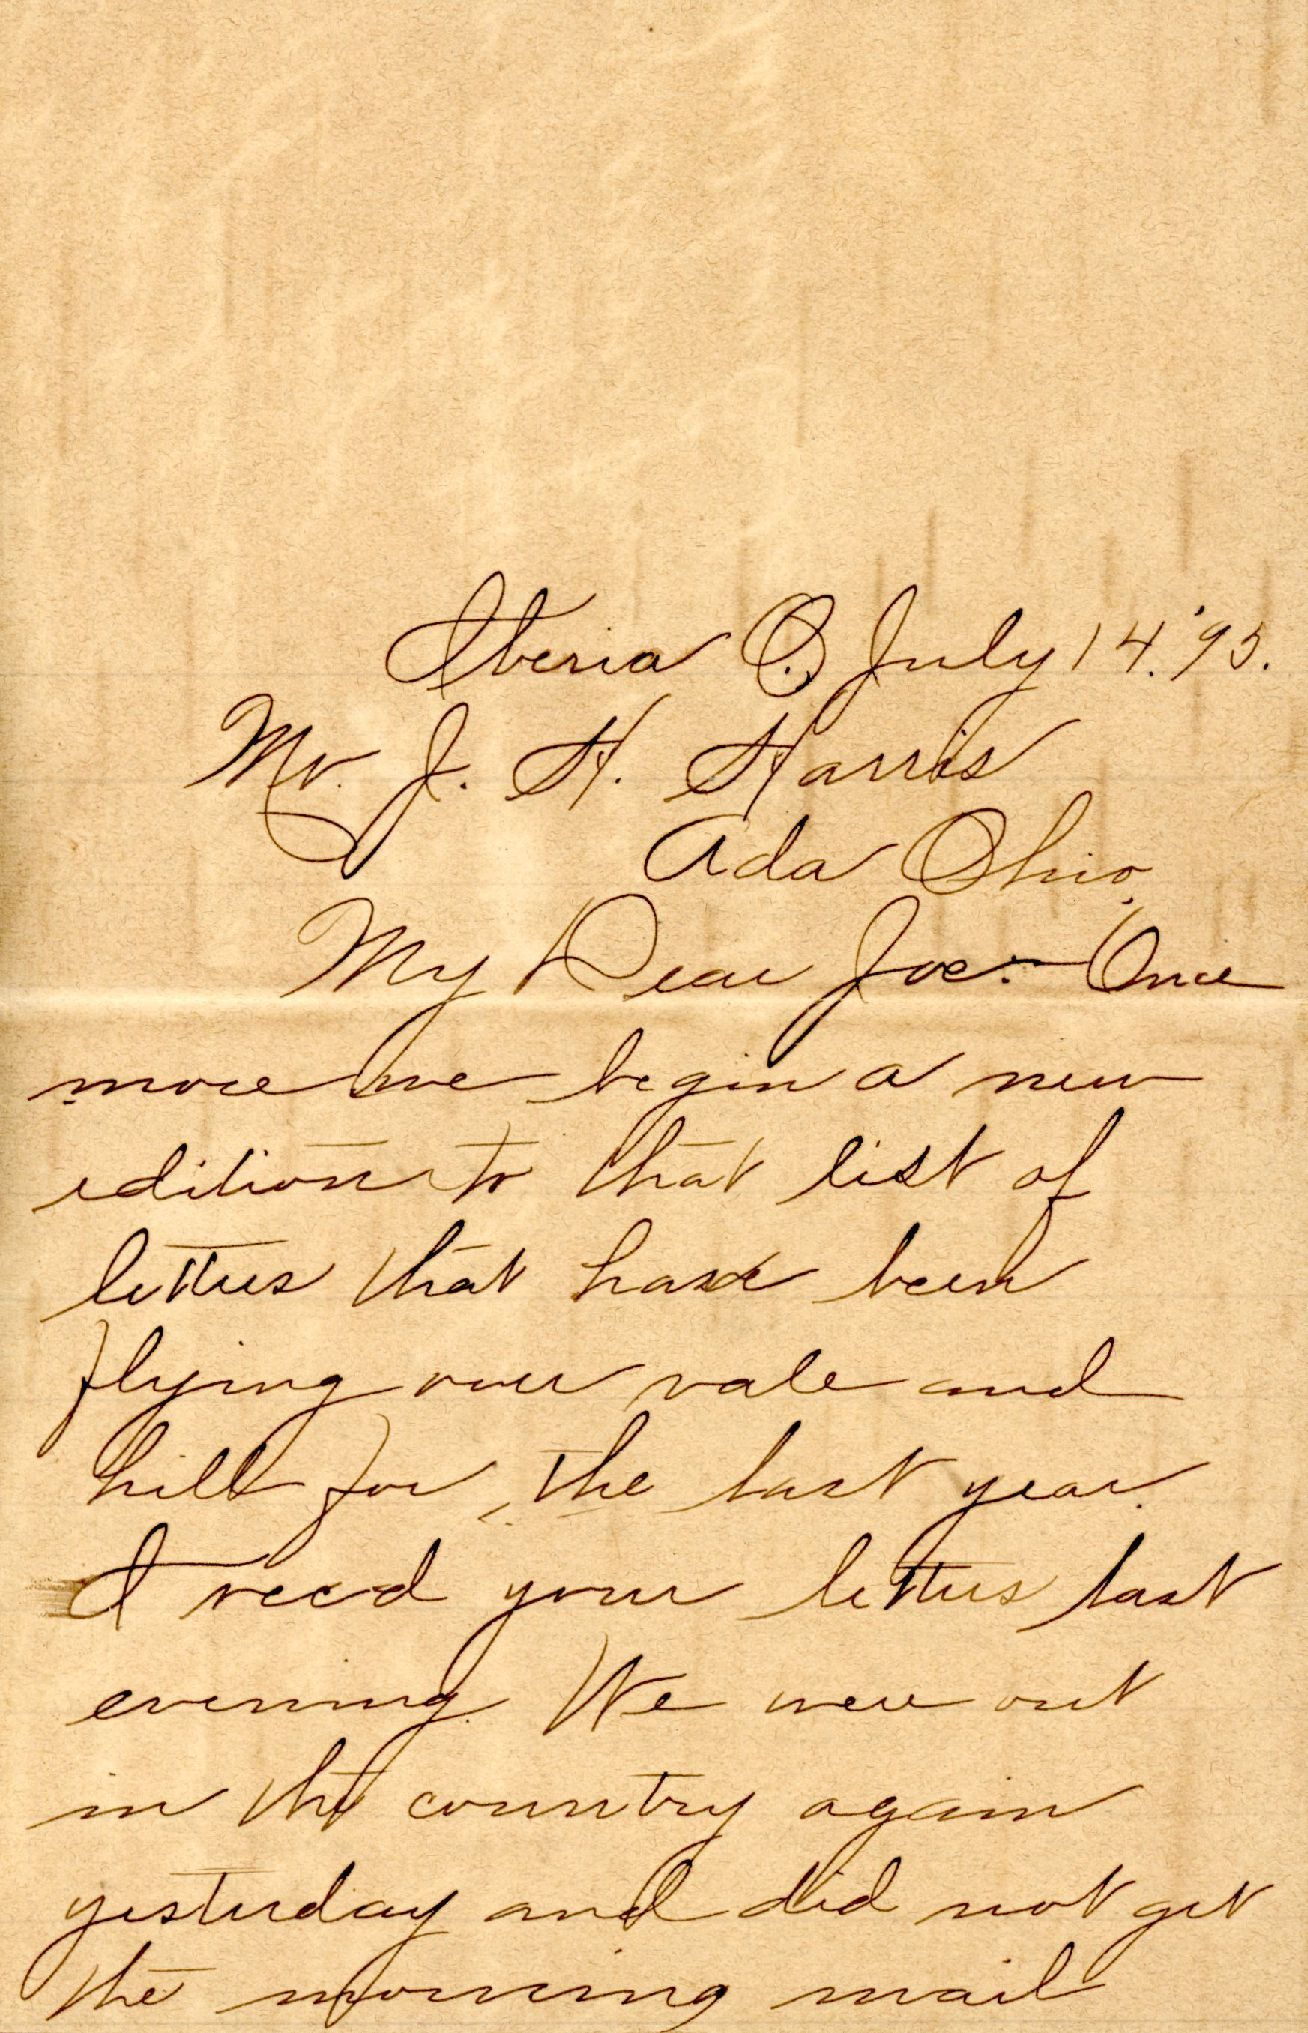 Iberia O. July 14. '95.
Mr. J. H. Harris
Ada Ohio.
My Dear Joe:- Once
more we begin a new
edition to that list of
letters that have been
flying over vale and
hill for the last year.
I recd your letters last
evening. We were out
in the country again
yesterday and did not get
the morning mail